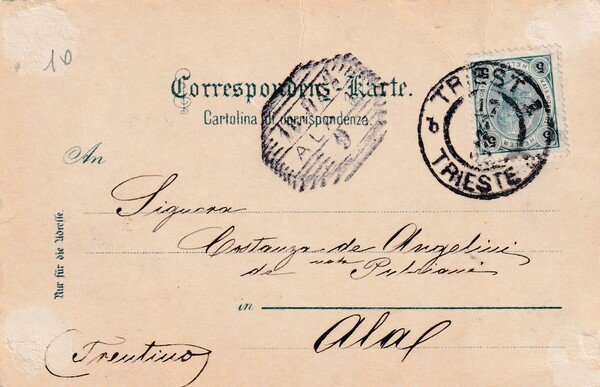 10
Correspondenz-Karte.
Cartolina di corrispondenza
TRIEST 1
TRIESTE
5 5
ALA
An
Signora
Costanza de Angelini
de nata Pulliani
in
Ala
(Trentino)
Nur für die Adresse.